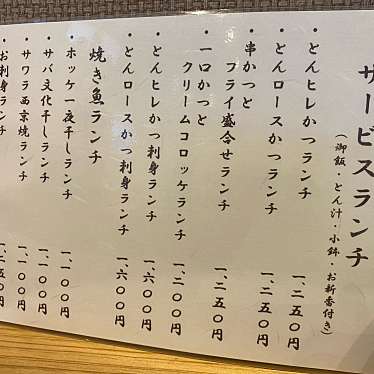 サービスランチ
(御飯・とん汁・小鉢・お新香付き)
・とんヒレかつランチ 一、二五〇円
・とんロースかつランチ 一、二五〇円
・串かつと
フライ盛合せランチ 一、二五〇円
・一口かつと
クリームコロッケランチ 一、二〇〇円
・とんヒレかつ刺身ランチ 一、六〇〇円
・とんロースかつ刺身ランチ 一、六〇〇円
焼き魚ランチ
・ホッケ一夜干しランチ 一、一〇〇円
・サバ文化干しランチ 一、一〇〇円
・サワラ西京焼ランチ 一、一〇〇円
・お刺身ランチ 一、二五〇円